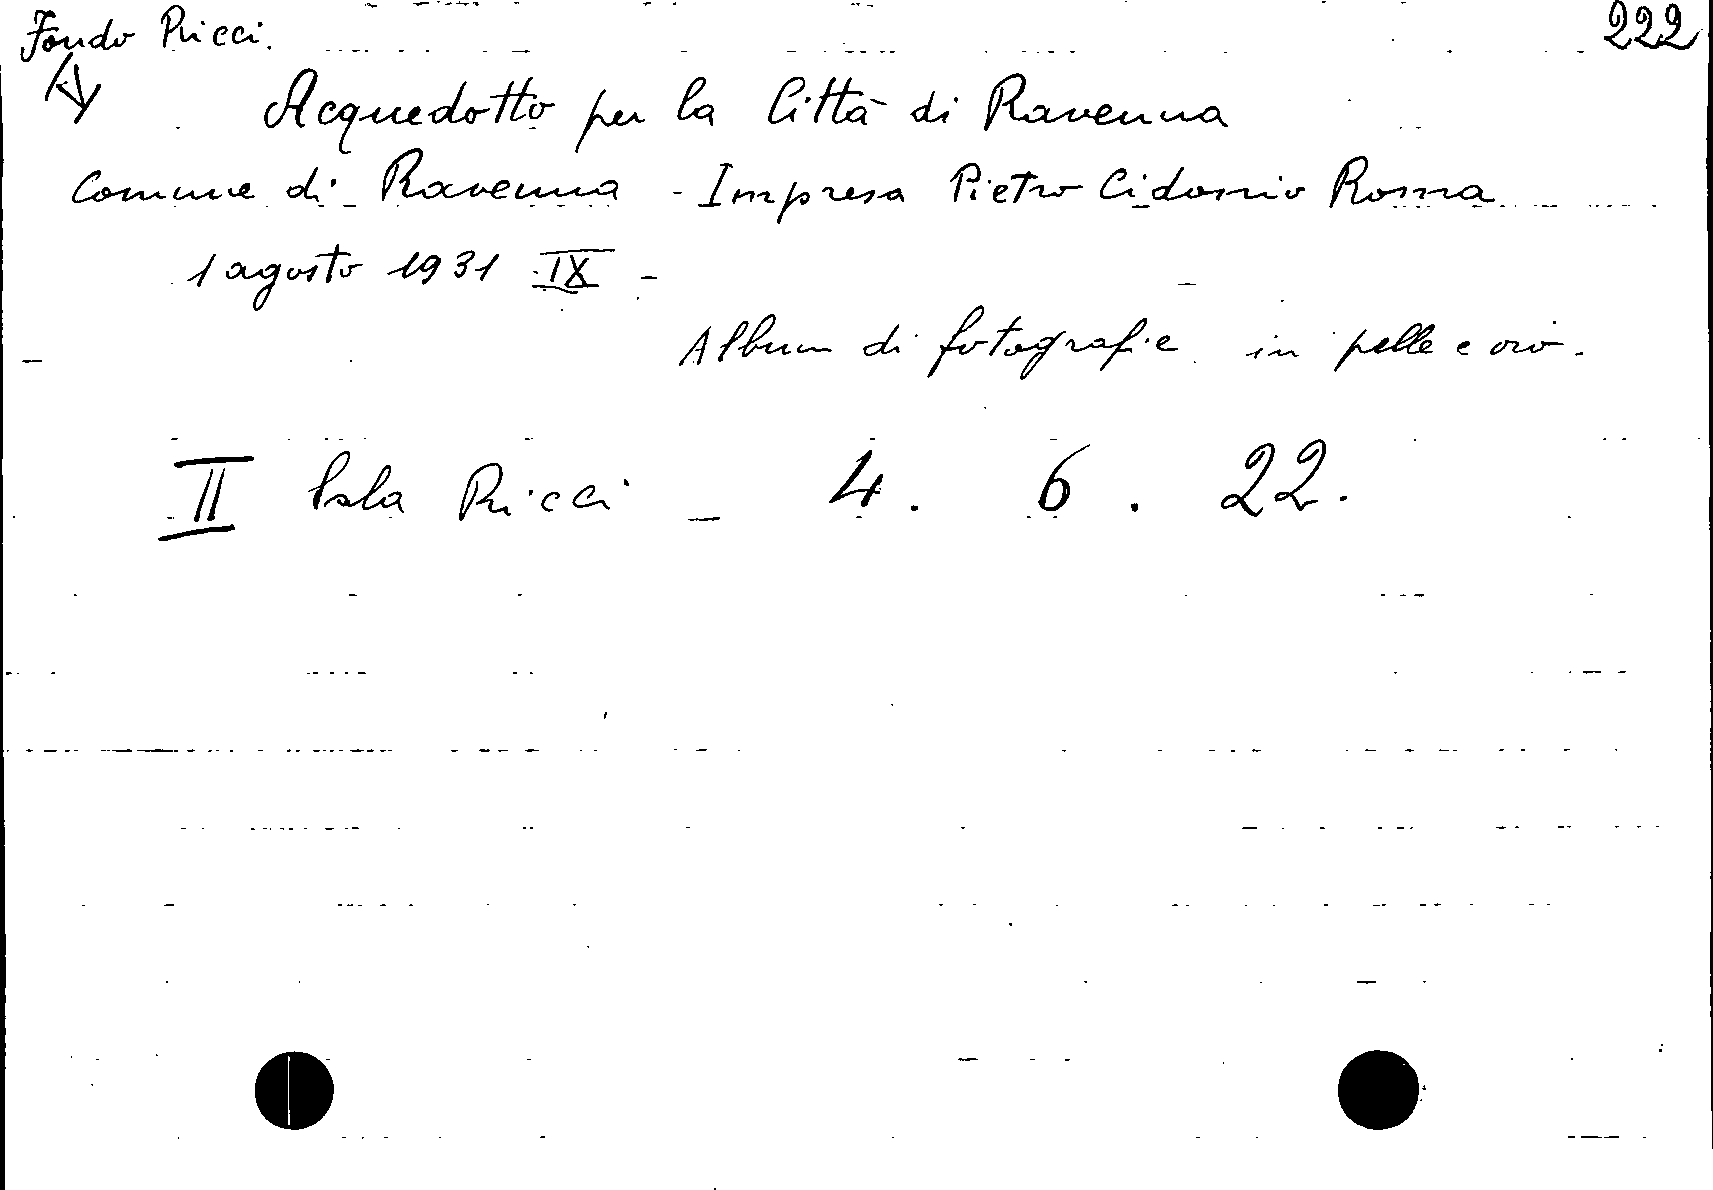 Fondo Ricci. 222
Acquedotto per la Città di Ravenna
Comune di Ravenna - Impresa Pietro Cidonio Roma
1 agosto 1931 IX -
Album di fotografie in pelle e oro.
II Sala Ricci - 4. 6. 22.